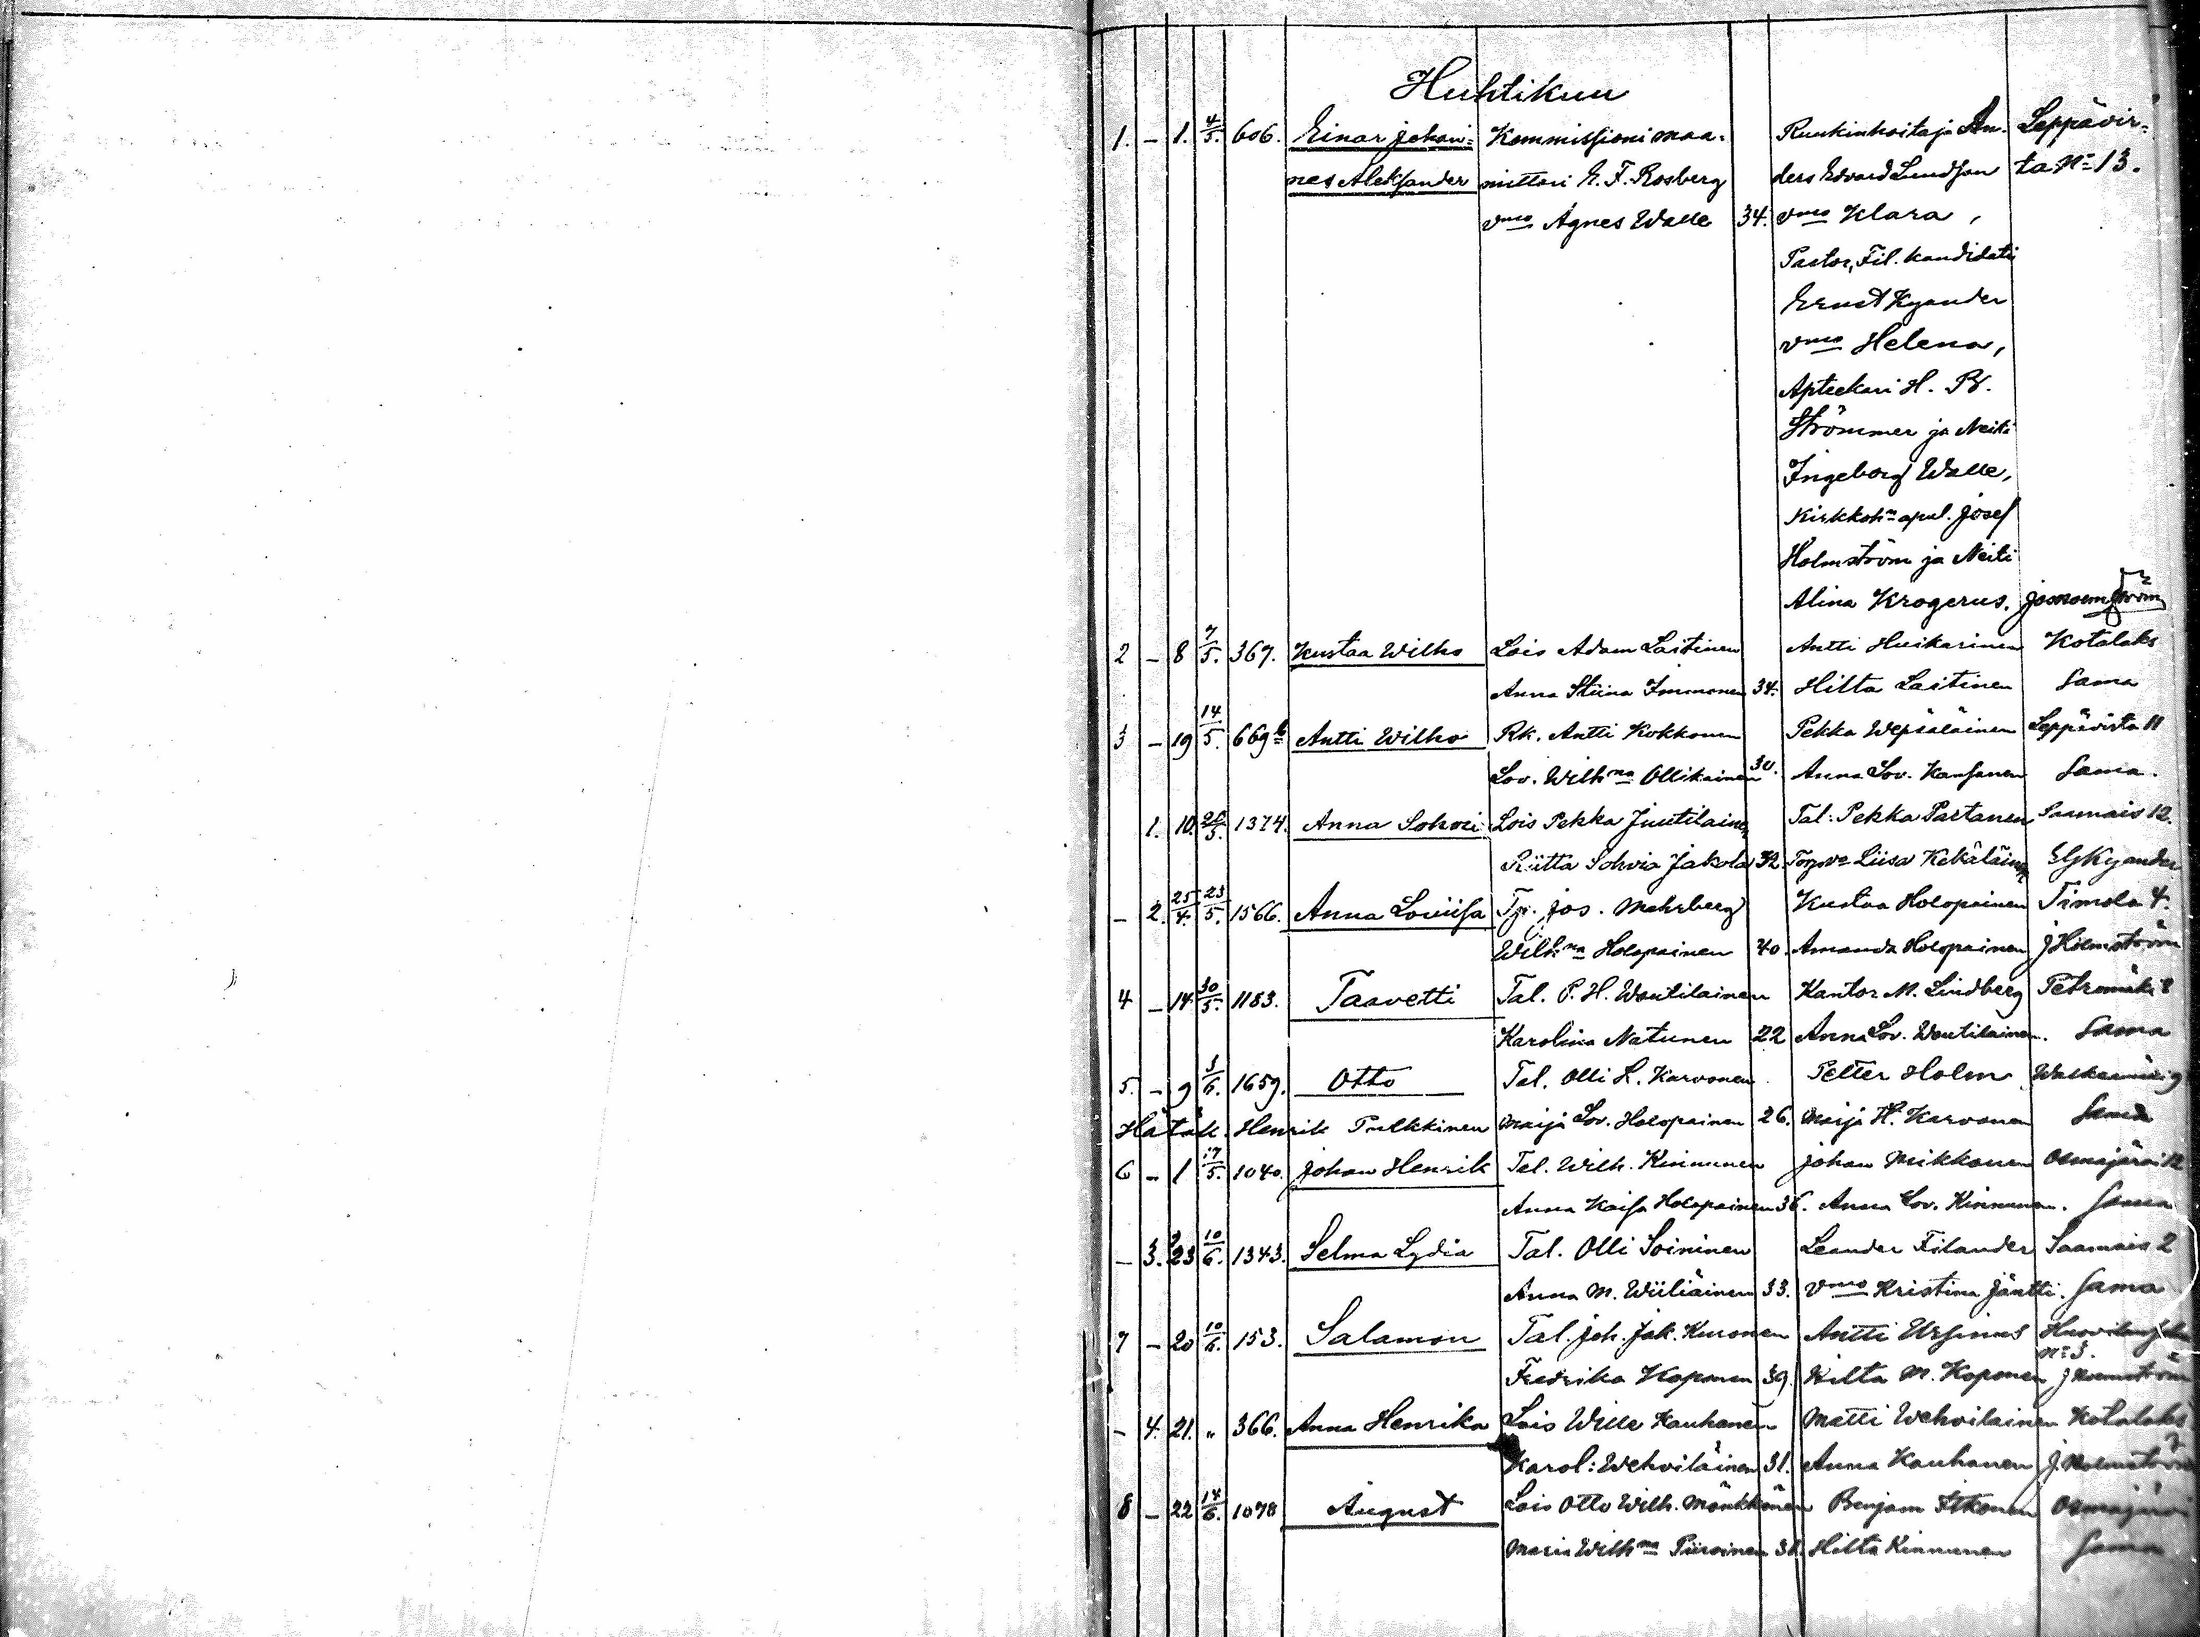 Huhtikuu
1. – 1. 4/5. 606. Einar Johan= Kommissioni maa= Ruukinhoitaja An= Leppävir=
nes Aleksander mittari E. F. Rosberg ders Edvard Lundson ta No 13.
vmo Agnes Walle 34. vmo Klara,
Pastor, Fil. kandidati
Ernst Kyander
vmo Helena,
Apteekari H. W.
Strömmer ja Neiti
Ingeborg Walle,
Kirkkoh:n apul. Josef
Holmström ja Neiti
Alina Krogerus. Jos Holmström
2 – 8 7/5. 367. Kustaa Wilho Lois Adam Laitinen Antti Huikarinen Kotalaks
Anna Stiina Immonen 34. Hilta Laitinen Sama
3 – 19 14/5. 669 b Antti Wilho Rk. Antti Kokkonen Pekka Wepsäläinen Leppävirta 11
Lov. Wilhna Ollikainen 30. Anna Lov. Kansanen Sama.
1. 10. 20/5. 1374. Anna Sohvi Lois Pekka Juutilainen Tal: Pekka Partanen Saamais 12.
Riitta Sohvia Jakola 32. Liisa Kekäläinen Kyander
– 2. 25/4. 23/5. 1566. Anna Loviisa Tp. Jos. Mehrberg Kustaa Holopainen Timola 4.
Wilhna Holopainen 40. Amanda Holopainen J Holmström
4 – 14. 30/5. 1183. Taavetti Tal. P. H. Woutilainen Kantor M. Lindberg Petromäki 8
Karolina Natunen 22 Anna Lov. Woutilainen. Sama
5. – 9 3/6. 1659. Otto Tal. Olli H. Karvonen Petter Holm 9
Hätäk. Henrik Pulkkinen Maija Lov. Holopainen 26. Maija H. Karvonen Sama
6 – 1 17/5. 1040. Johan Henrik Tal. Wilh. Kinnunen Johan Mikkonen Osmajärvi 12
Anna Kaisa Holopainen 36. Anna Lov. Kinnunen. Sama
– 3. 23 10/6. 1343. Selma Lydia Tal. Olli Soininen Leander Filander Saamais 2
Anna M. Wiiliäinen 33. vmo Kristina Jäntti. Sama
7 – 20 10/6. 153. Salamon Tal. Joh. Jak. Kuronen Antti Ursinus
No 3.
Fredrika Koponen 39 Hilta M. Koponen J Holmström
– 4. 21. „ 366. Anna Henrika Lois Wille Kauhanen Matti Wehvilainen Kotalaks
Karol: Wehviläinen 31. Anna Kauhanen J. Holmström
8 – 22 14/6. 1078 August Lois Otto Wilh. Mönkkönen Benjam Itkonen Osmajärvi
Maria Wilhna Piiroinen Hilta Kinnunen Sama